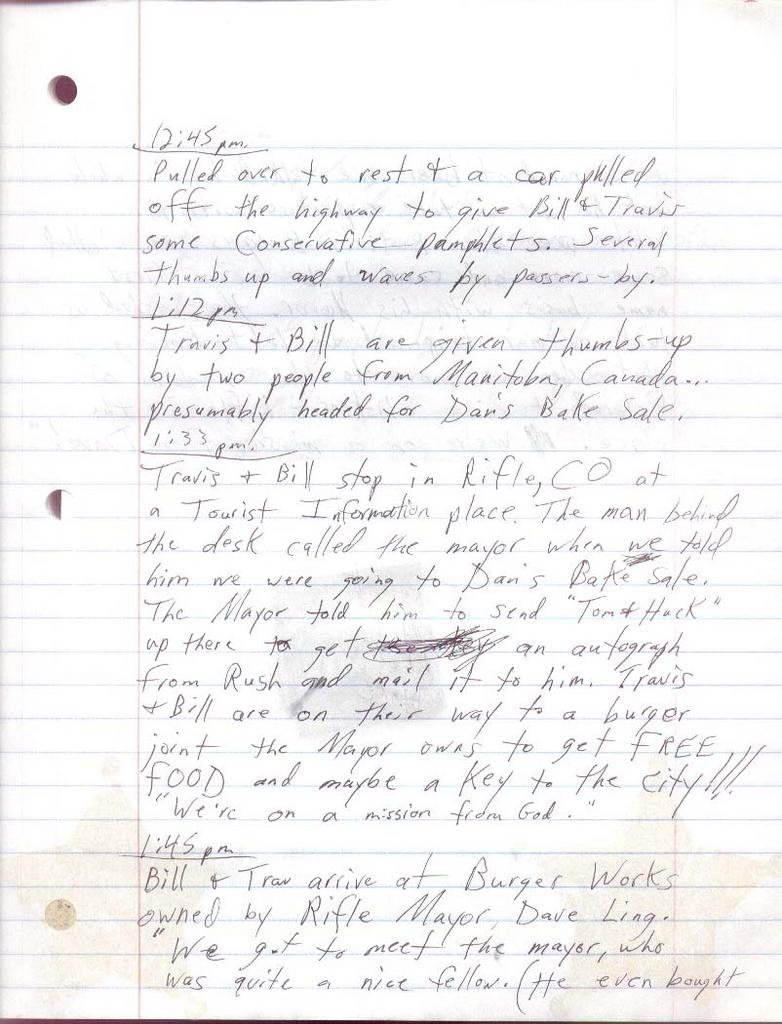 12:45 pm.
Pulled over to rest & a car pulled
off the highway to give Bill & Travis
some Conservative pamphlets. Several
thumbs up and waves by passers-by.
1:12 pm
Travis + Bill are given thumbs-up
by two people from Manitoba, Canada...
presumably headed for Dan's Bake Sale.
1:33 pm.
Travis + Bill stop in Rifle, CO at
a Tourist Information place. The man behind
the desk called the mayor when we told
him we were going to Dan's Bake Sale.
The Mayor told him to send "Tom & Huck"
up there to get an autograph
from Rush and mail it to him. Travis
+ Bill are on their way to a burger
joint the Mayor owns to get FREE
FOOD and maybe a Key to the City!!!
"We're on a mission from God."
1:45 pm
Bill & Trav arrive at Burger Works
owned by Rifle Mayor, Dave Ling.
"We got to meet the mayor, who
was quite a nice fellow. (He even bought